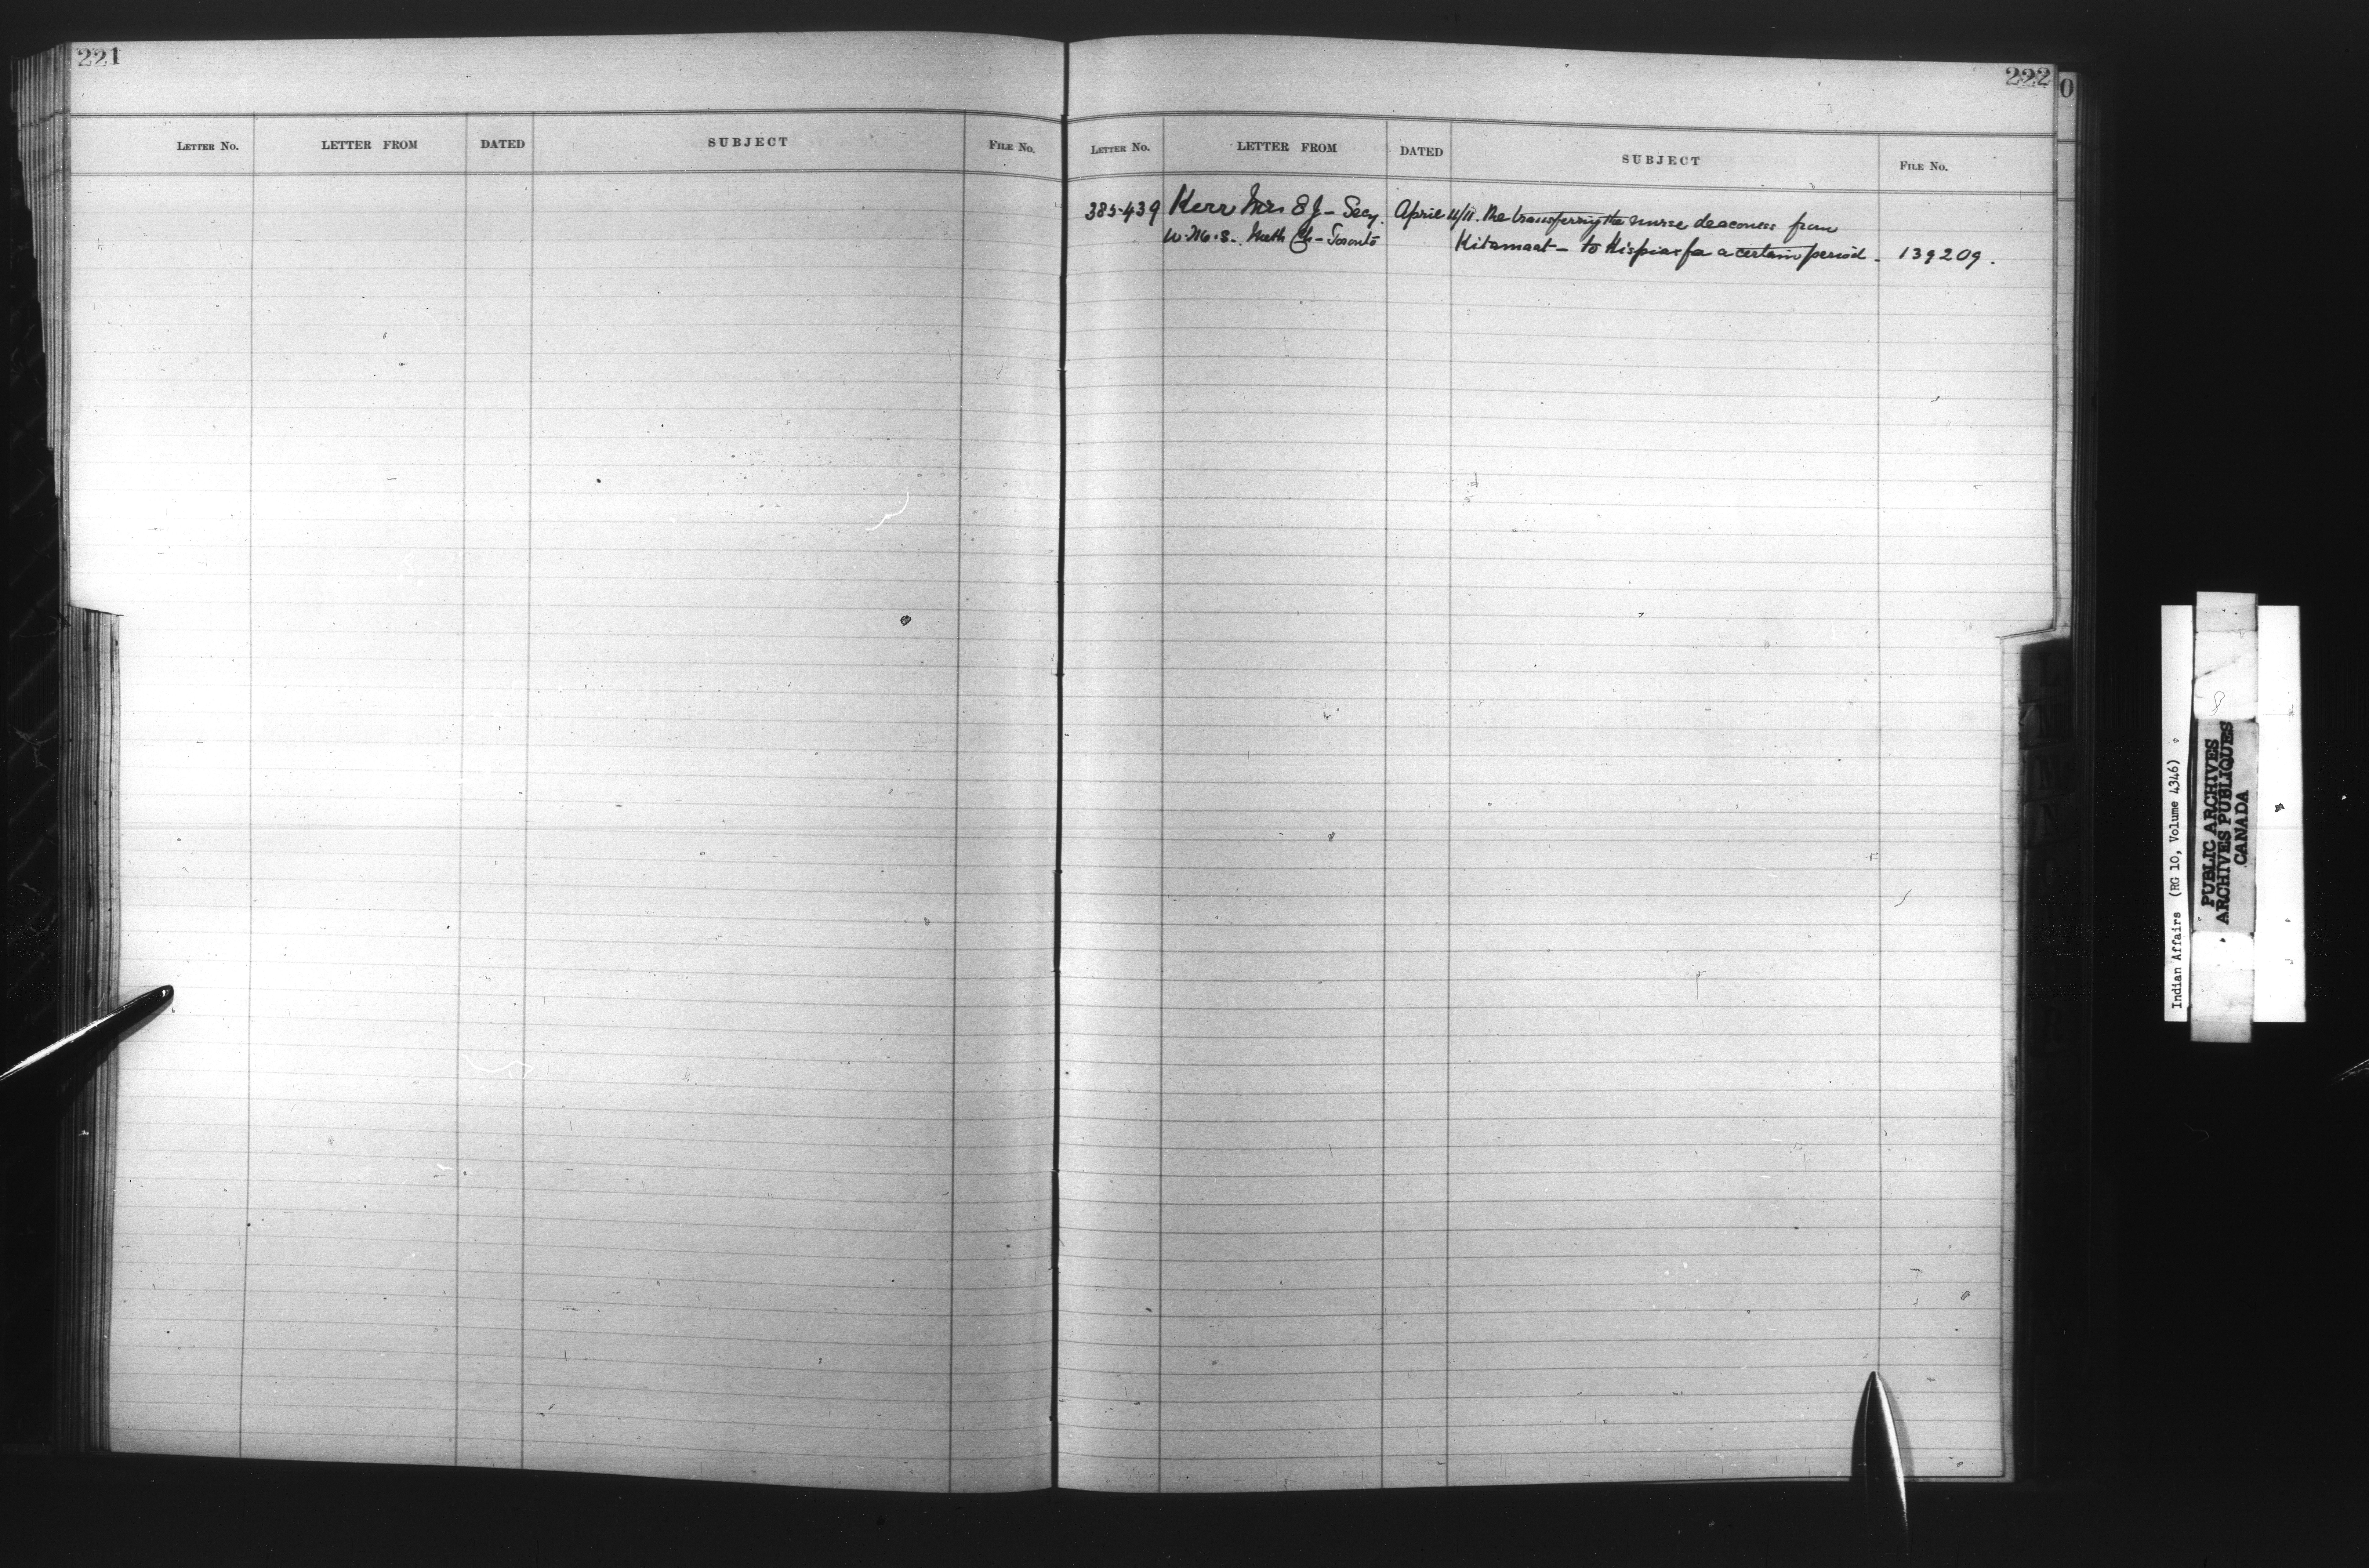 221
LETTER No. LETTER FROM DATED SUBJECT FILE No.
222
0
LETTER No. LETTER FROM DATED SUBJECT FILE No.
385439 Kerr Mrs E J - Secy. April 11/11. Re transferring the nurse deaconess from
W.M.S. Meth Ch - Toronto Kitamaat - to Kispiax for a certain period - 139209.
Indian Affairs (RG 10, Volume 4346)
PUBLIC ARCHIVES
ARCHIVES PUBLIQUES
CANADA